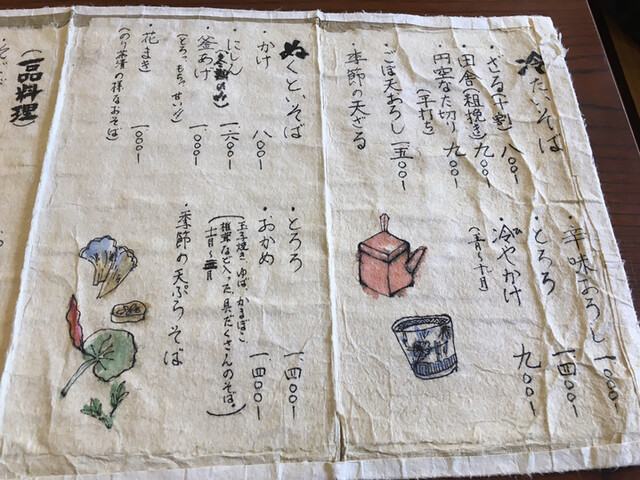 冷たいそば
・ざる(十割) 八〇〇-
・田舎(粗挽き) 九〇〇-
・円空なた切り 九〇〇-
(平打ち)
・ごぼ天おろし 一五〇〇-
・季節の天ざる
・辛味おろし 一〇〇〇-
・とろろ 一四〇〇-
・冷やかけ 九〇〇-
ぬくといそば
・かけ 八〇〇-
・にしん 一六〇〇-
・釜あげ 一〇〇〇-
・花まき 一〇〇〇-
(のり茶漬の様なおそば)
・とろろ 一四〇〇-
・おかめ 一四〇〇-
玉子焼き、ゆば、かまぼこ
椎茸など入った、具だくさんのそば。
・季節の天ぷらそば
(一品料理)